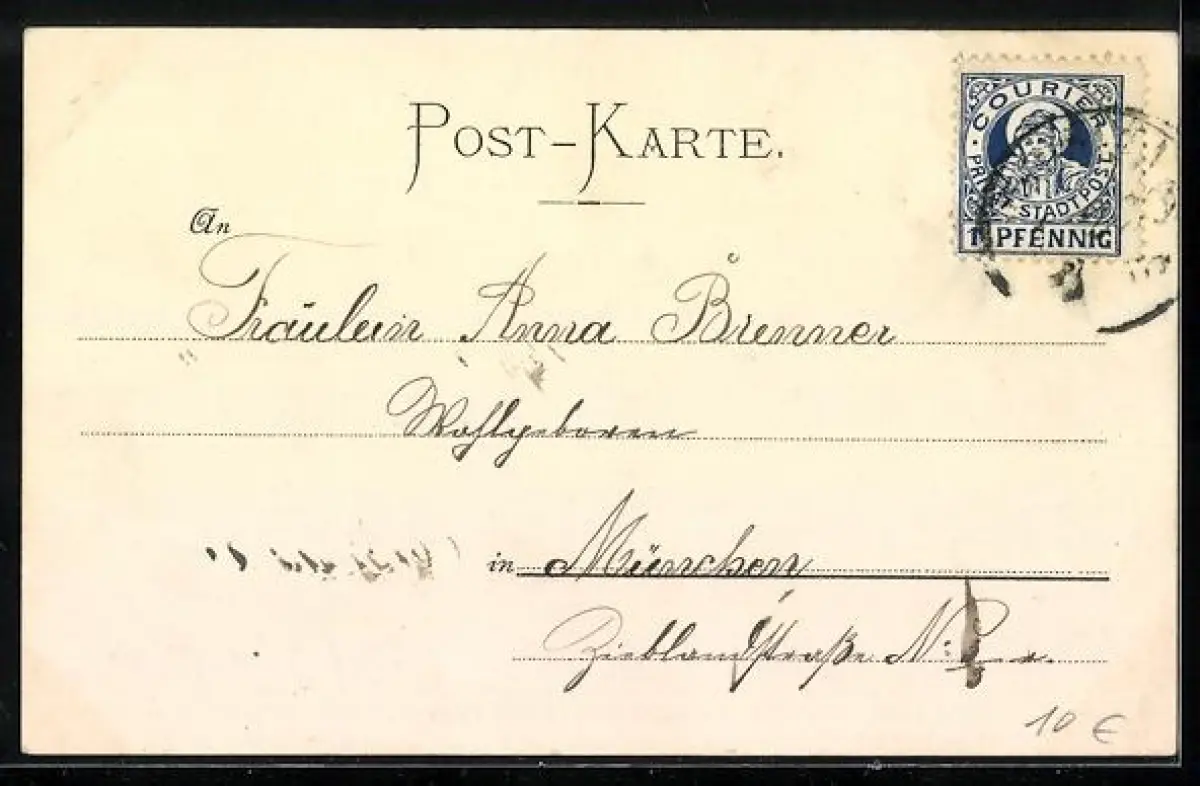 POST-KARTE.
COURIER
PRIVAT-STADTPOST
1 PFENNIG
An
Fräulein Anna Brenner
Wohlgeboren
in München
Zieblandstraße N:
10 €